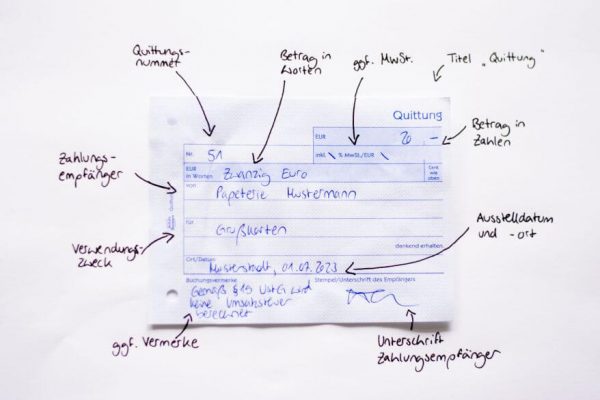 Quittungs-
nummer
Betrag in
Worten
ggf. MwSt.
Titel „Quittung“
Quittung
EUR 20,–
Betrag in
Zahlen
Nr. 51
inkl. \ % MwSt./EUR \
Zahlungs-
empfänger
EUR
in Worten Zwanzig Euro
Cent
wie
oben
von
Papeterie Mustermann
für
Grußkarten
Verwendungs-
zweck
dankend erhalten
Ausstelldatum
und -ort
Ort/Datum
Musterstadt, 01.07.2023
Buchungsvermerke
Stempel/Unterschrift des Empfängers
Gemäß §19 UStG wird
keine Umsatzsteuer
berechnet
ggf. Vermerke
Unterschrift
Zahlungsempfänger